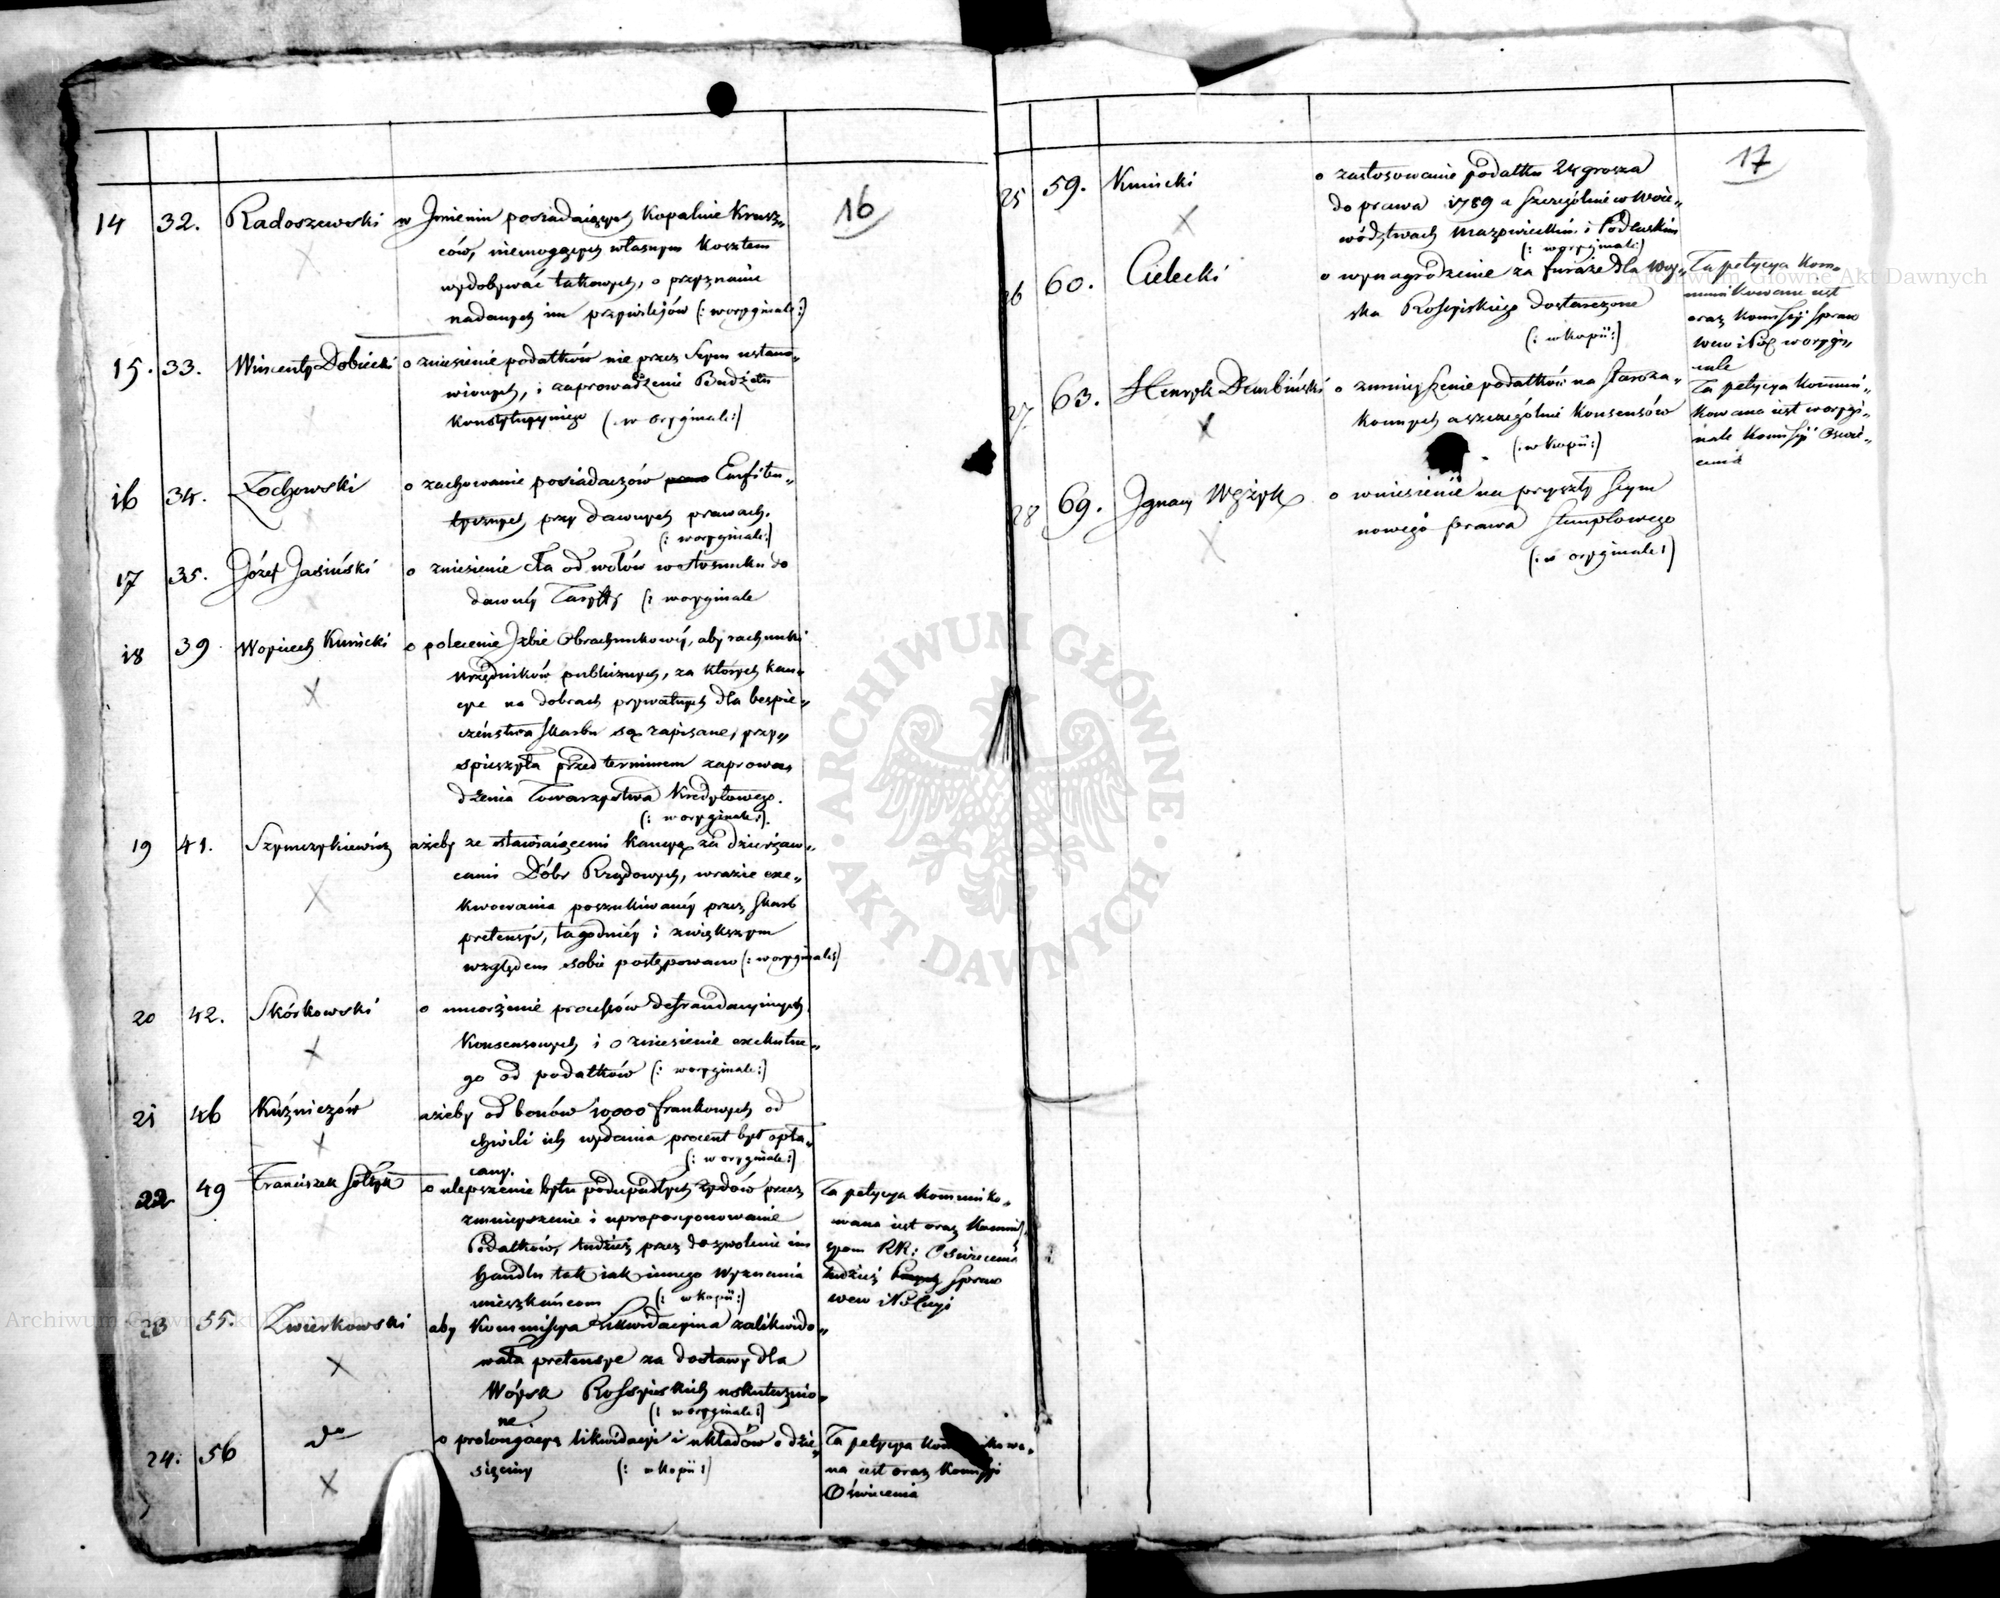 16
14 32. Radoszewski w Imieniu posiadaiących Kopalnie Krusz„
ców, niemogących własnym kosztem
wydobywać takowych, o przyznanie
nadanych im przywilejów (: w oryginale :)
15. 33. Wincenty Dobiecki o zniesienie podatków nie przez Seym ustano„
wionych, i zaprowadzenie Budżetu
Konstytucyinego (: w oryginale :)
16 34. Zochowski o zachowanie posiadaczów Emfiteu„
tycznych przy dawnych prawach.
(: w oryginale :)
17 35. Józef Jasiński o zniesienie cła od wołów w stosunku do
dawnéy Taryffy (: w oryginale
18 39 Woyciech Kunicki o polecenie Izbie Obrachunkowéy, aby rachunki
Urzędników publicznych, za których kau„
cye na dobrach prywatnych dla bespie„
czeństwa Skarbu są zapisane, przy„
spieszyła przed terminem zaprowa„
dzenia Towarzystwa Kredytowego.
(: w oryginale :).
19 41. Szymczykiewicz ażeby ze stawaiącemi Kaucyą za dzierżaw„
cami Dóbr Rządowych, w razie exe„
kwowania poszukiwanéy przez Skarb
pretensyi, łagodniéy i zwiększym
względem sobie postępowano (: w oryginale :)
20 42. Skórkowski o umorzenie processów defraudacyinych
Konsensowych i o zniesienie exekutne„
go od podatków (: w oryginale :)
21 46 Kuźniczów ażeby od bonów 10,000 frankowych od
chwili ich wydania procent był opła„
cany. (: w oryginale :)
22 49 Franciszek Sołtyk o ulepszenie bytu podupadłych żydów przez
zmnieyszenie i uproporcyonowanie
Podatków, tudzież przez dozwolenie im
Handlu tak iak innego Wyznania
mieszkańcom (: w kopii :)
Ta petycya kommuniko„
wana iest oraz Kommis„
syom RR: Oświecenia
tudzież Spraw
wew i Policyi
23 55. Zwierkowski aby Kommissya Likwidacyina zalikwido„
wała pretensye za dostawy dla
Woysk Rossyiskich uskutecznio„
ne (: w oryginale :)
24. 56 do o prolongacyą likwidacyi i układów o dzie„
sięciny (: w kopii :)
Ta petycya kommunikowa„
na iest oraz Kommissyi
Oświecenia
17
25 59. Kunicki o zastosowanie podatku 24 grosza
do prawa 1789 a szczególnie w Woie„
wództwach Mazowieckim i Podlaskim
(: w oryginale :)
26 60. Cielecki o wynagrodzenie za furaże dla Woy„
ska Rossyiskiego dostarczone
(: w kopii :)
Ta petycya kom„
munikowana iest
oraz Komissyi Spraw
wew i Pol w orygi„
nale
27. 63. Henryk Dembiński o zmnieyszenie podatków na Staroza„
konnych a szczególnie konsensów
(: w kopii :)
Ta petycya kommuni„
kowana iest w orygi„
nale Komissyi Oświe„
cenia
28 69. Ignacy Wężyk o wniesienie na przyszły Seym
nowego prawa Stemplowego
(: w oryginale :)
ARCHIWUM GŁÓWNE AKT DAWNYCH
Archiwum Główne Akt Dawnych
Archiwum Główne Akt Dawnych